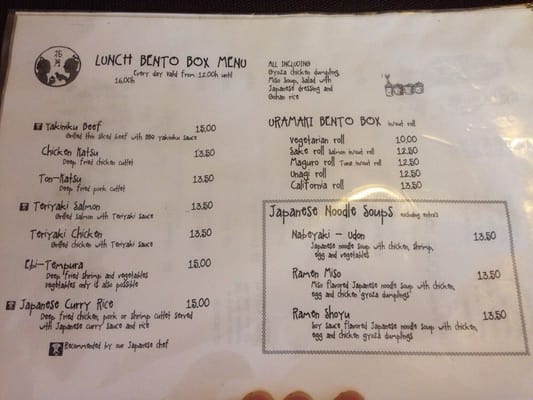 LUNCH BENTO BOX MENU
Every day valid from 12.00h until
16.00h
Yakiniku Beef 15,00
Grilled thin sliced beef with BBQ Yakiniku sauce
Chicken Katsu 13,50
Deep fried chicken cutlet
Ton-Katsu 13,50
Deep fried pork cutlet
Teriyaki Salmon 13,50
Grilled salmon with Teriyaki sauce
Teriyaki Chicken 13,50
Grilled chicken with Teriyaki sauce
Ebi-Tempura 15,00
Deep fried shrimp and vegetables
vegetables only is also possible
Japanese Curry Rice 15,00
Deep fried chicken, pork or shrimp cutlet served
with Japanese curry sauce and rice
Recommended by our Japanese chef
ALL INCLUDING
Gyoza chicken dumpling,
Miso Soup, Salad with
Japanese dressing and
Gohan rice
URAMAKI BENTO BOX in/out roll
Vegetarian roll 10,00
Sake roll Salmon in/out roll 12,50
Maguro roll Tuna in/out roll 12,50
Unagi roll 12,50
California roll 13,50
Japanese Noodle Soups excluding extra's
Nabeyaki - Udon 13,50
Japanese noodle soup with chicken, shrimp,
egg and vegetables
Ramen Miso 13,50
Miso flavored Japanese noodle soup with chicken,
egg and chicken gyoza dumplings
Ramen Shoyu 13,50
Soy sauce flavored Japanese noodle soup with chicken,
egg and chicken gyoza dumplings